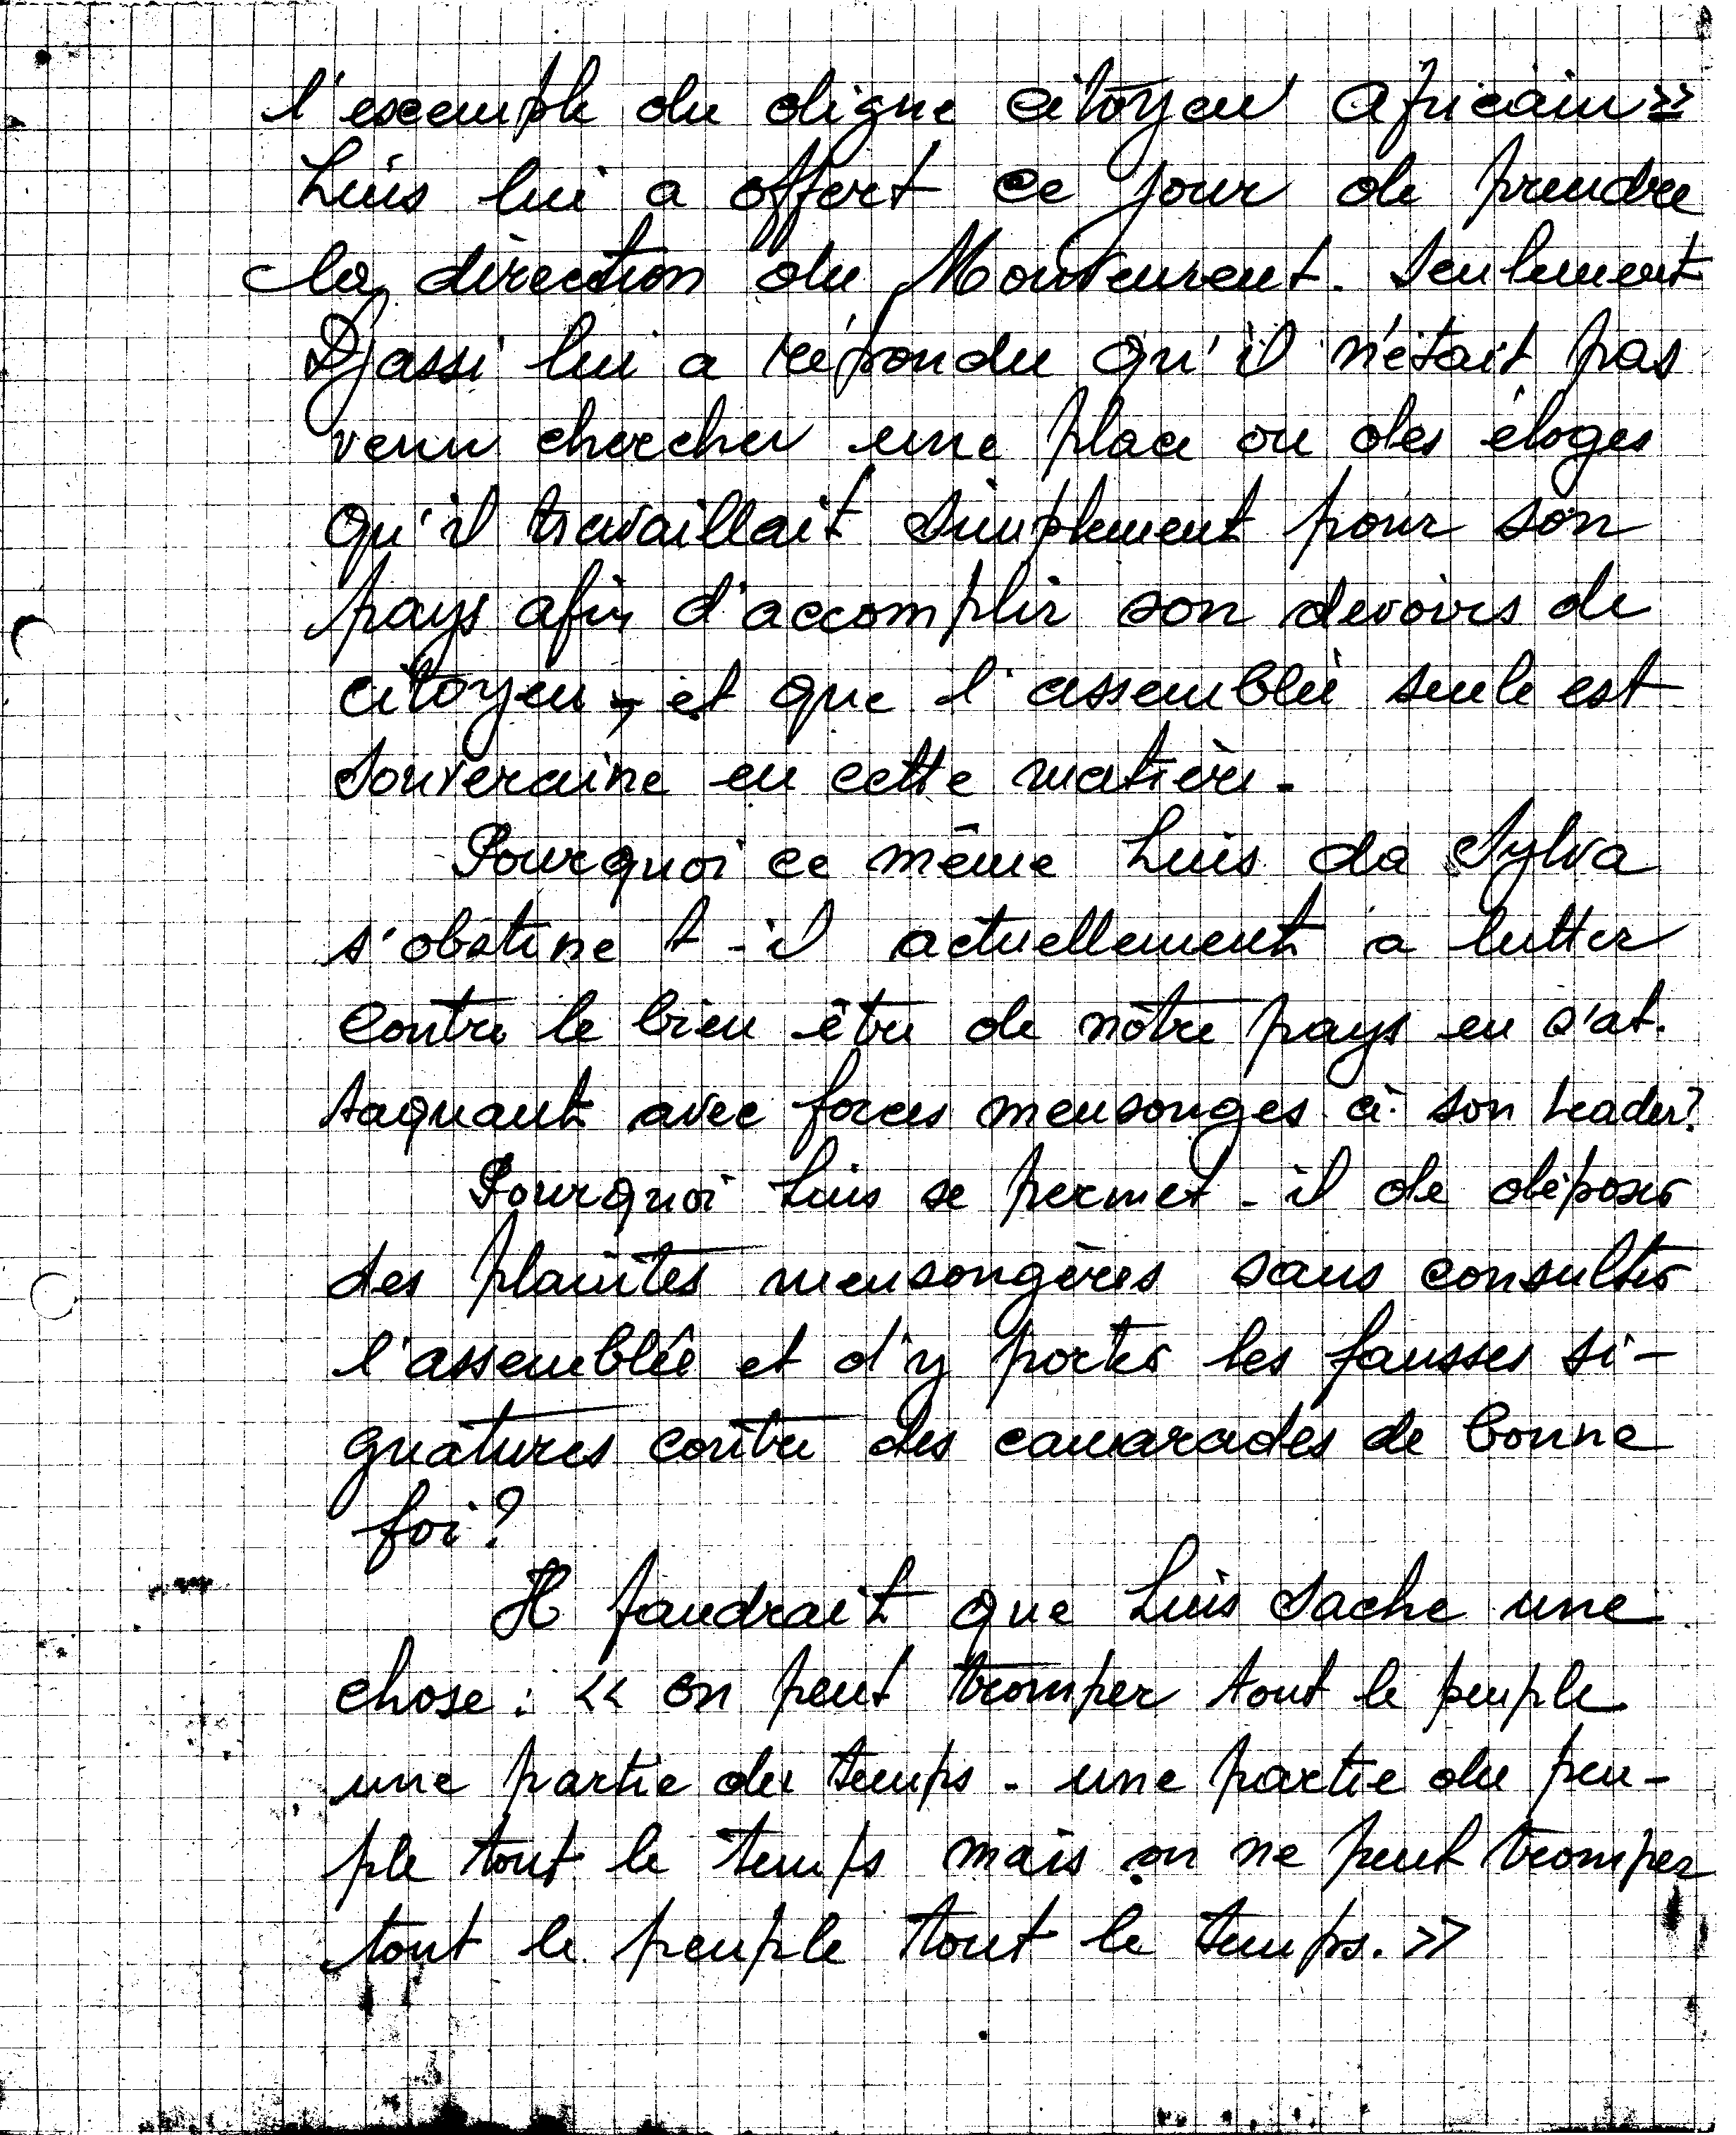 l'exemple du digne citoyen Africain »
Luis lui a offert ce jour de prendre
la direction du Mouvement. Seulement
Djassi lui a répondu qu'il n'était pas
venu chercher une place ou des éloges
qu'il travaillait simplement pour son
pays afin d'accomplir son devoirs de
citoyen, et que l'assemblée seule est
souveraine en cette matière.
Pourquoi ce même Luis da Sylva
s'obstine t-il actuellement a lutter
contre le bien être de nôtre pays en s'at-
taquant avec forces mensonges à son Leader?
Pourquoi Luis se permet-il de déposer
des plaintes mensongères sans consulter
l'assemblée et d'y porter les fausses si-
gnatures contre des camarades de bonne
foi?
Il faudrait que Luis sache une
chose : « on peut tromper tout le peuple
une partie du temps. une partie du peu-
ple tout le temps mais on ne peut tromper
tout le peuple tout le temps. »